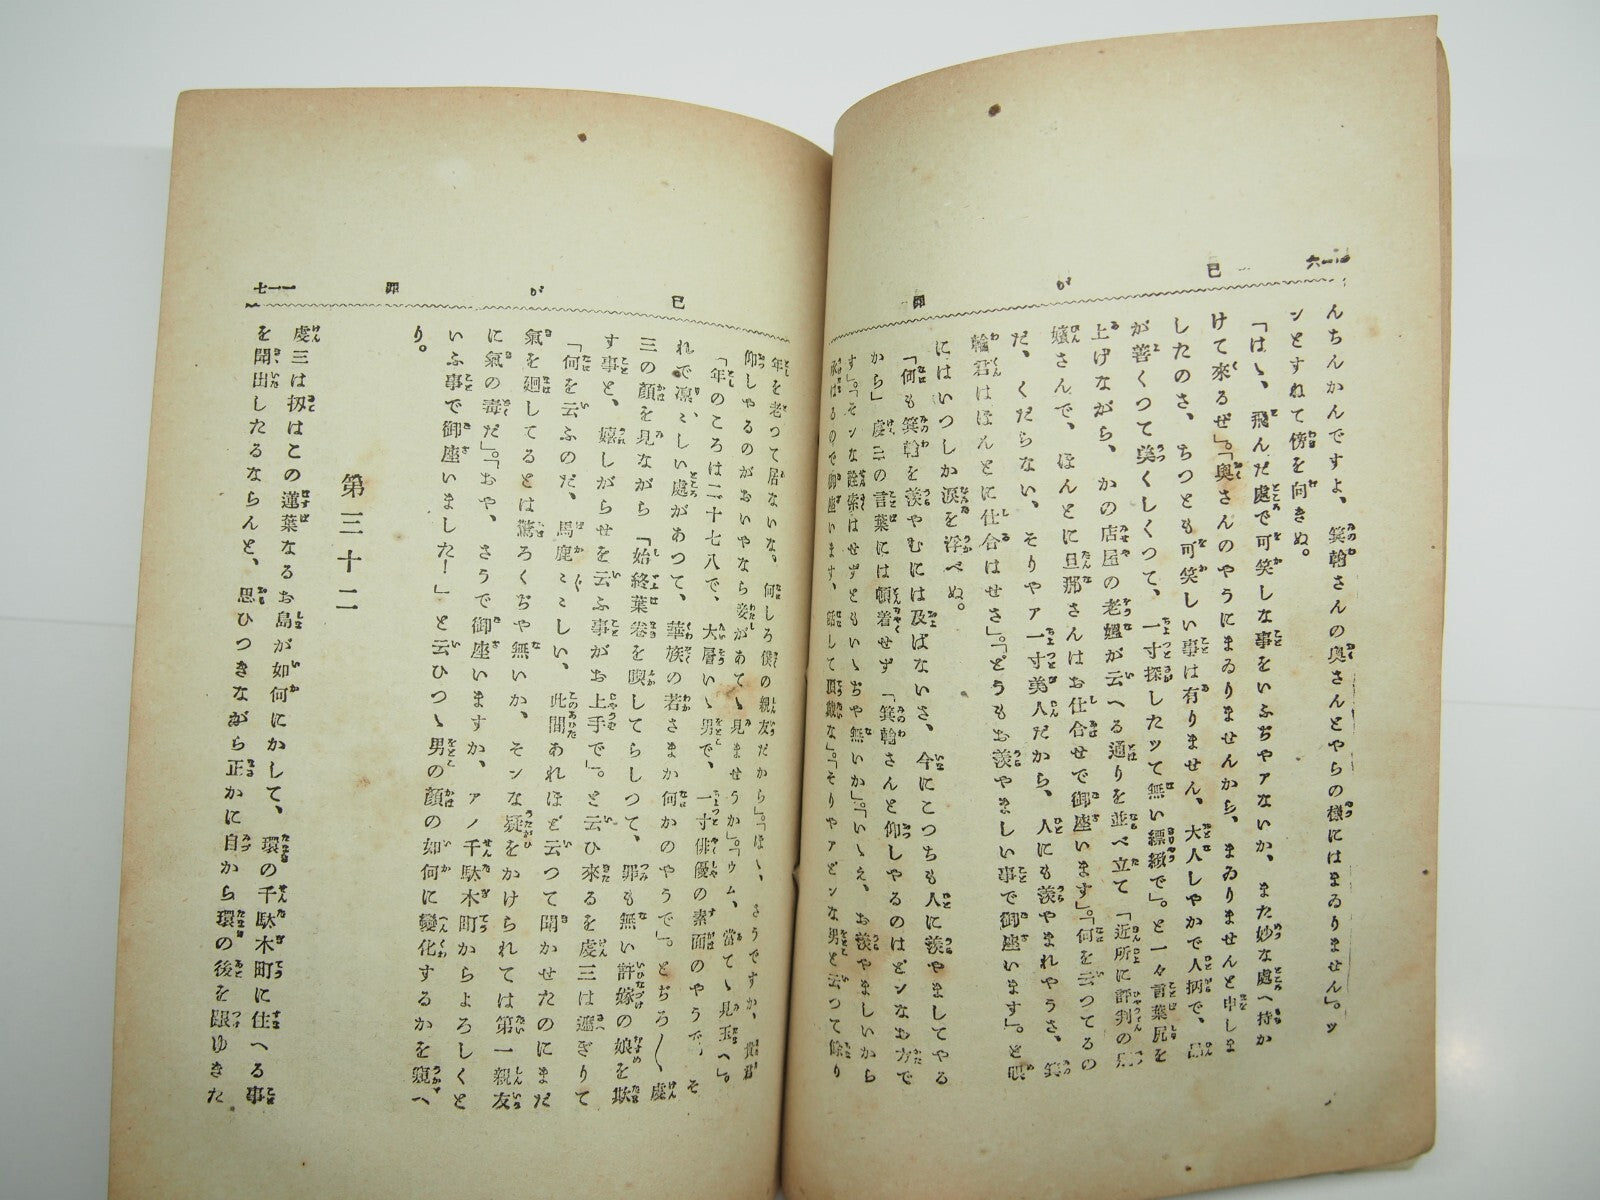 六一一
己
が
罪
んちんかんですよ、箕輪さんの奥さんとやらの様にはまゐりません」。ッ
ンとすねて傍を向きぬ。
「はゝ、飛んだ處で可笑しな事をいふぢやアないか、また妙な處へ持か
けて來るぜ」。「奥さんのやうにまゐりませんから、まゐりませんと申しま
したのさ、ちつとも可笑しい事は有りません、大人しやかで人柄で、
が善くつて美くしくつて、一寸探したッて無い縹緻で」。と一々言葉尻を
上げながら、かの店屋の老媼が云へる通りを並べ立て「近所に評判の
孃さんで、ほんとに旦那さんはお仕合せで御座います」。「何を云つてるの
だ、くだらない、そりやァ一寸美人だから、人にも羨やまれやうさ、箕
輪君はほんとに仕合はせさ」。「どうもお羨やましい事で御座います」。と眼
にはいつしか涙を浮べぬ。
「何も箕輪を羨やむには及ばないさ、今にこつちも人に羨やましてやる
から」虔三の言葉には頓着せず「箕輪さんと仰しやるのはどンなお方で
す」。「そンな詮索はせずともいゝぢや無いか」。「いゝえ、お羨やましいから
承はるので御座います、話して頂戴な」。「そりやァどンな男と云つて餘り
七一一
己
が
罪
年を老つて居ないな。何しろ僕の親友だから」。「ほゝ、さうですか、貴君
仰しやるのがおいやなら妾があてゝ見ませうか」。「ウム、當てゝ見玉へ」。
「年のころは二十七八で、大層いゝ男で、一寸俳優の素面のやうで、そ
れで凛々しい處があつて、華族の若さまか何かのやうで」。とぢろ〳〵虔
三の顔を見ながら「始終葉卷を喫してらしつて、罪も無い許嫁の娘を欺
す事と、嬉しがらせを云ふ事がお上手で」。と云ひ來るを虔三は遮ぎりて
「何を云ふのだ、馬鹿〻〻しい、此間あれほど云つて聞かせたのにまだ
氣を廻してるとは驚ろくぢや無いか、そンな疑をかけられては第一親友
に氣の毒だ」。「おや、さうで御座いますか、アノ千駄木町からよろしくと
いふ事で御座いました！」と云ひつゝ男の顔の如何に變化するかを窺へ
り。
第三十二
虔三は扨はこの蓮葉なるお島が如何にかして、環の千駄木町に仕へる事
を聞出したるならんと、思ひつきながら正かに自から環の後を跟ゆきた